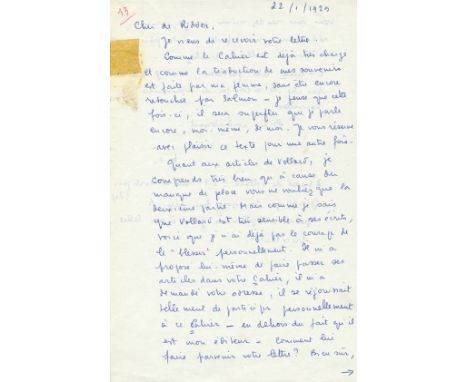 13
22/1/1925
Cher de Ridder,
Je viens de recevoir votre lettre.
Comme le Cahier est déjà très chargé
et comme la traduction de mes souvenirs
est faite par ma femme, sans être encore
retouchée par Salmon – je pense que cette
fois-ci, il sera superflu que je parle
encore, moi-même, de moi. Je vous réserve
avec plaisir ce texte pour une autre fois.
Quant aux articles de Vollard, je
comprends très bien qu'à cause du
manque de place vous ne vouliez que la
deuxième partie. Mais comme je sais
que Vollard est très sensible à ses écrits,
voici que je n'ai déjà pas le courage de
le "blesser" personnellement. Il m'a
proposé lui-même de faire passer ses
articles dans votre Cahier, il m'a
demandé votre adresse, il se réjouissait
tellement de participer personnellement
à ce Cahier – en dehors du fait qu'il
est mon éditeur – Comment lui
faire parvenir votre lettre? Bien sûr,
→